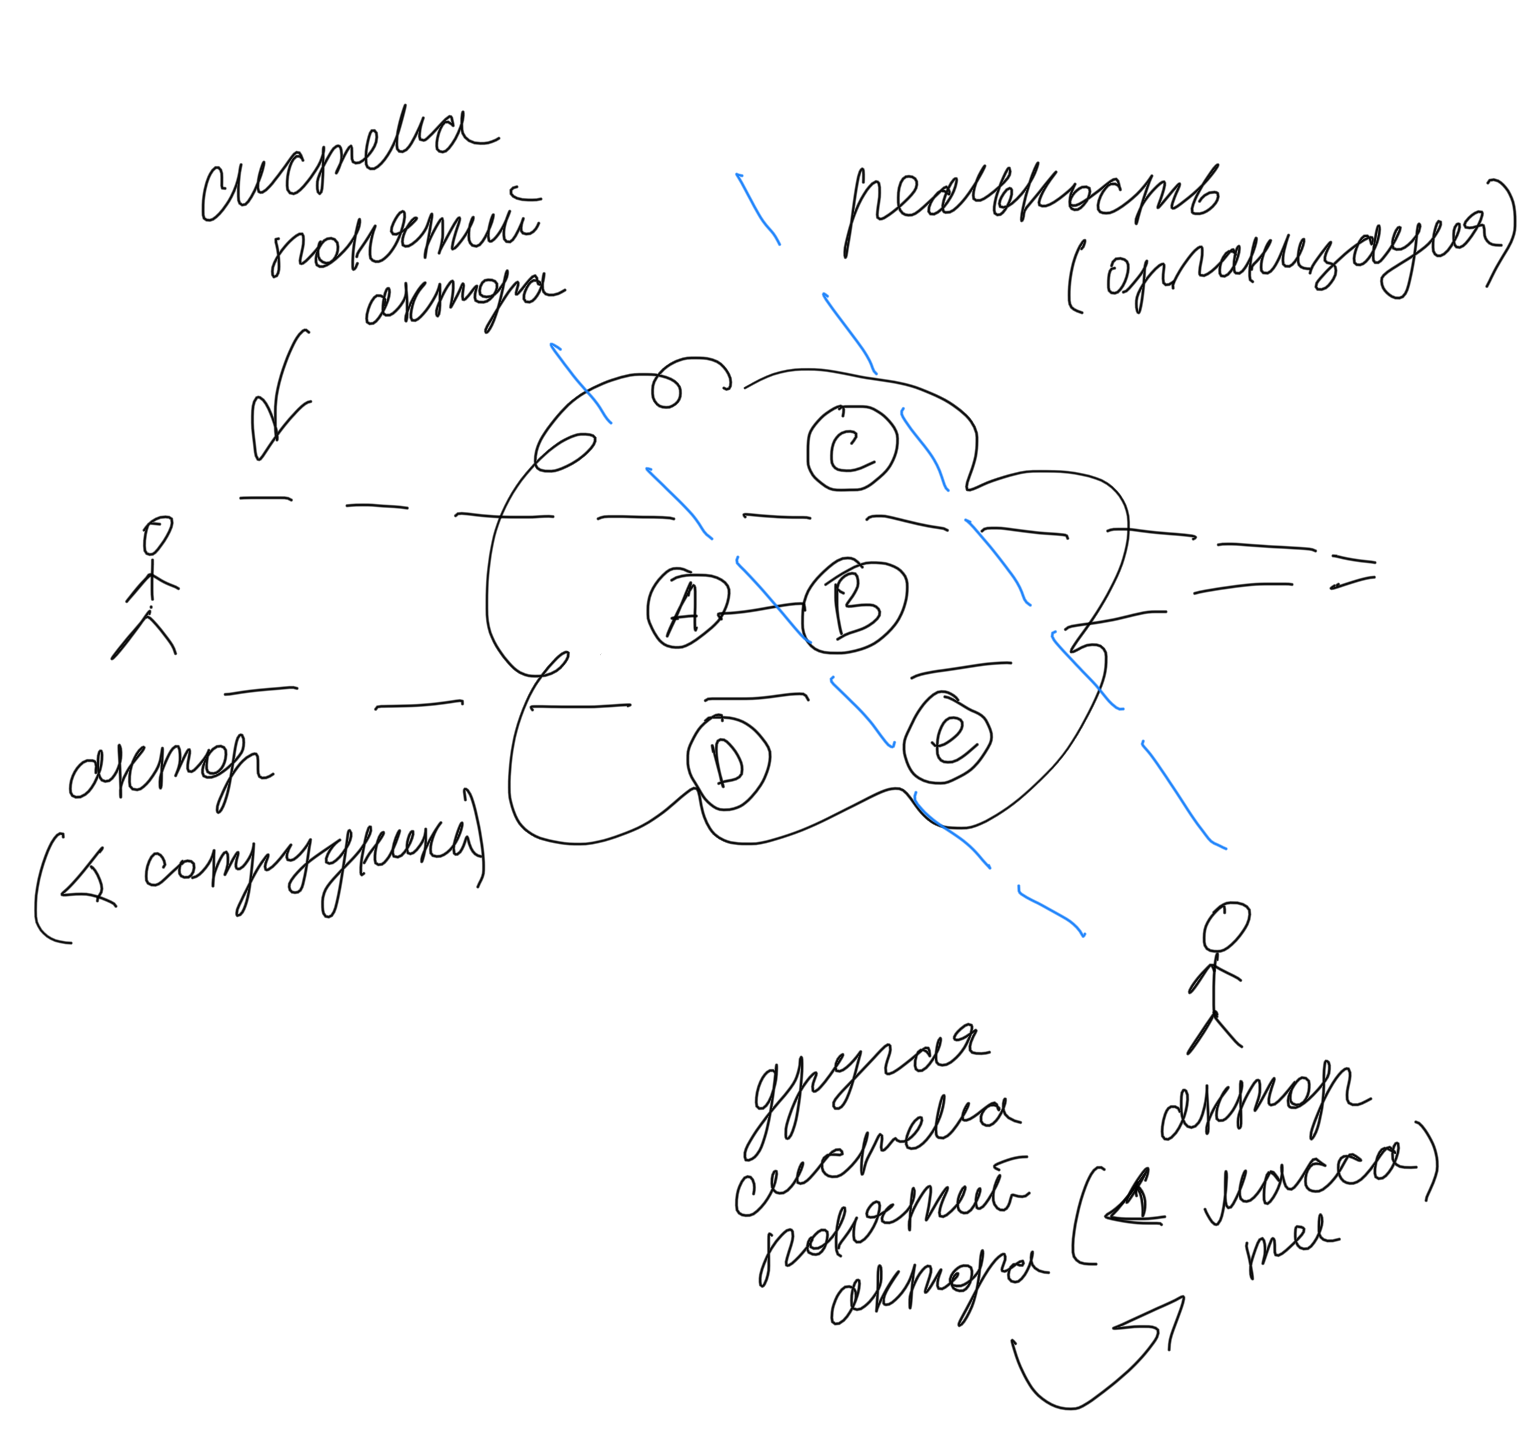 система
понятий
актора
реальность
(организация)
A
B
C
D
e
актор
(∡ сотрудники)
другая
система
понятий
актора
актор
(∡ масса)